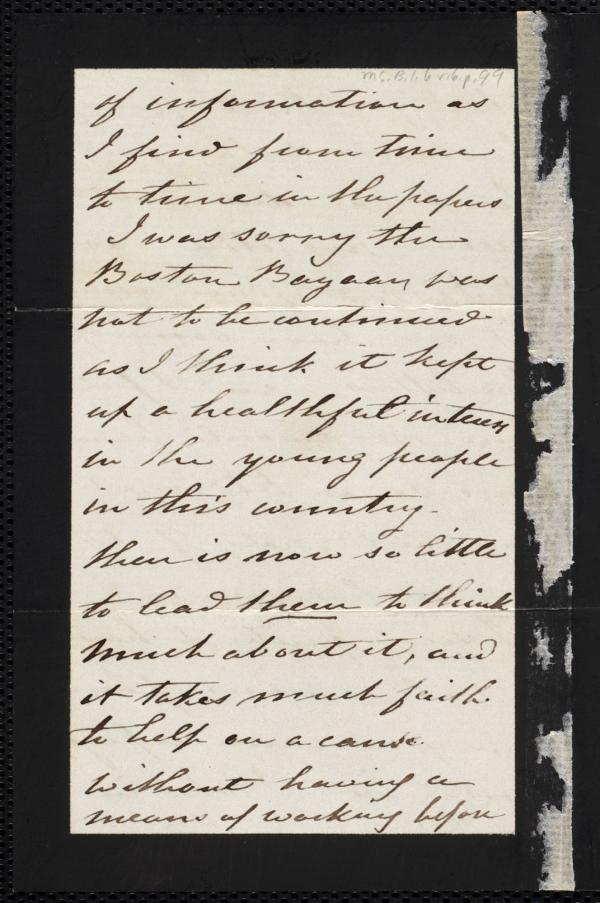 Ms. B. 1. 6 v. 6. p. 99
of information as
I find from time
to time in the papers
I was sorry the
Boston Bazaar was
not to be continued
as I think it kept
up a healthful interest
in the young people
in this country.
there is now so little
to lead them to think
much about it, and
it takes much faith
to help on a cause
without having a
means of working before